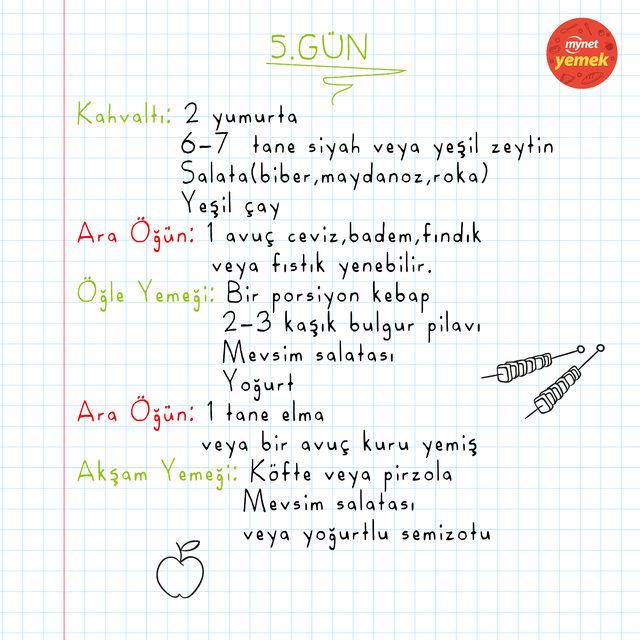 5.GÜN
mynet
yemek
Kahvaltı: 2 yumurta
6-7 tane siyah veya yeşil zeytin
Salata(biber,maydanoz,roka)
Yeşil çay
Ara Öğün: 1 avuç ceviz,badem,fındık
veya fıstık yenebilir.
Öğle Yemeği: Bir porsiyon kebap
2-3 kaşık bulgur pilavı
Mevsim salatası
Yoğurt
Ara Öğün: 1 tane elma
veya bir avuç kuru yemiş
Akşam Yemeği: Köfte veya pirzola
Mevsim salatası
veya yoğurtlu semizotu